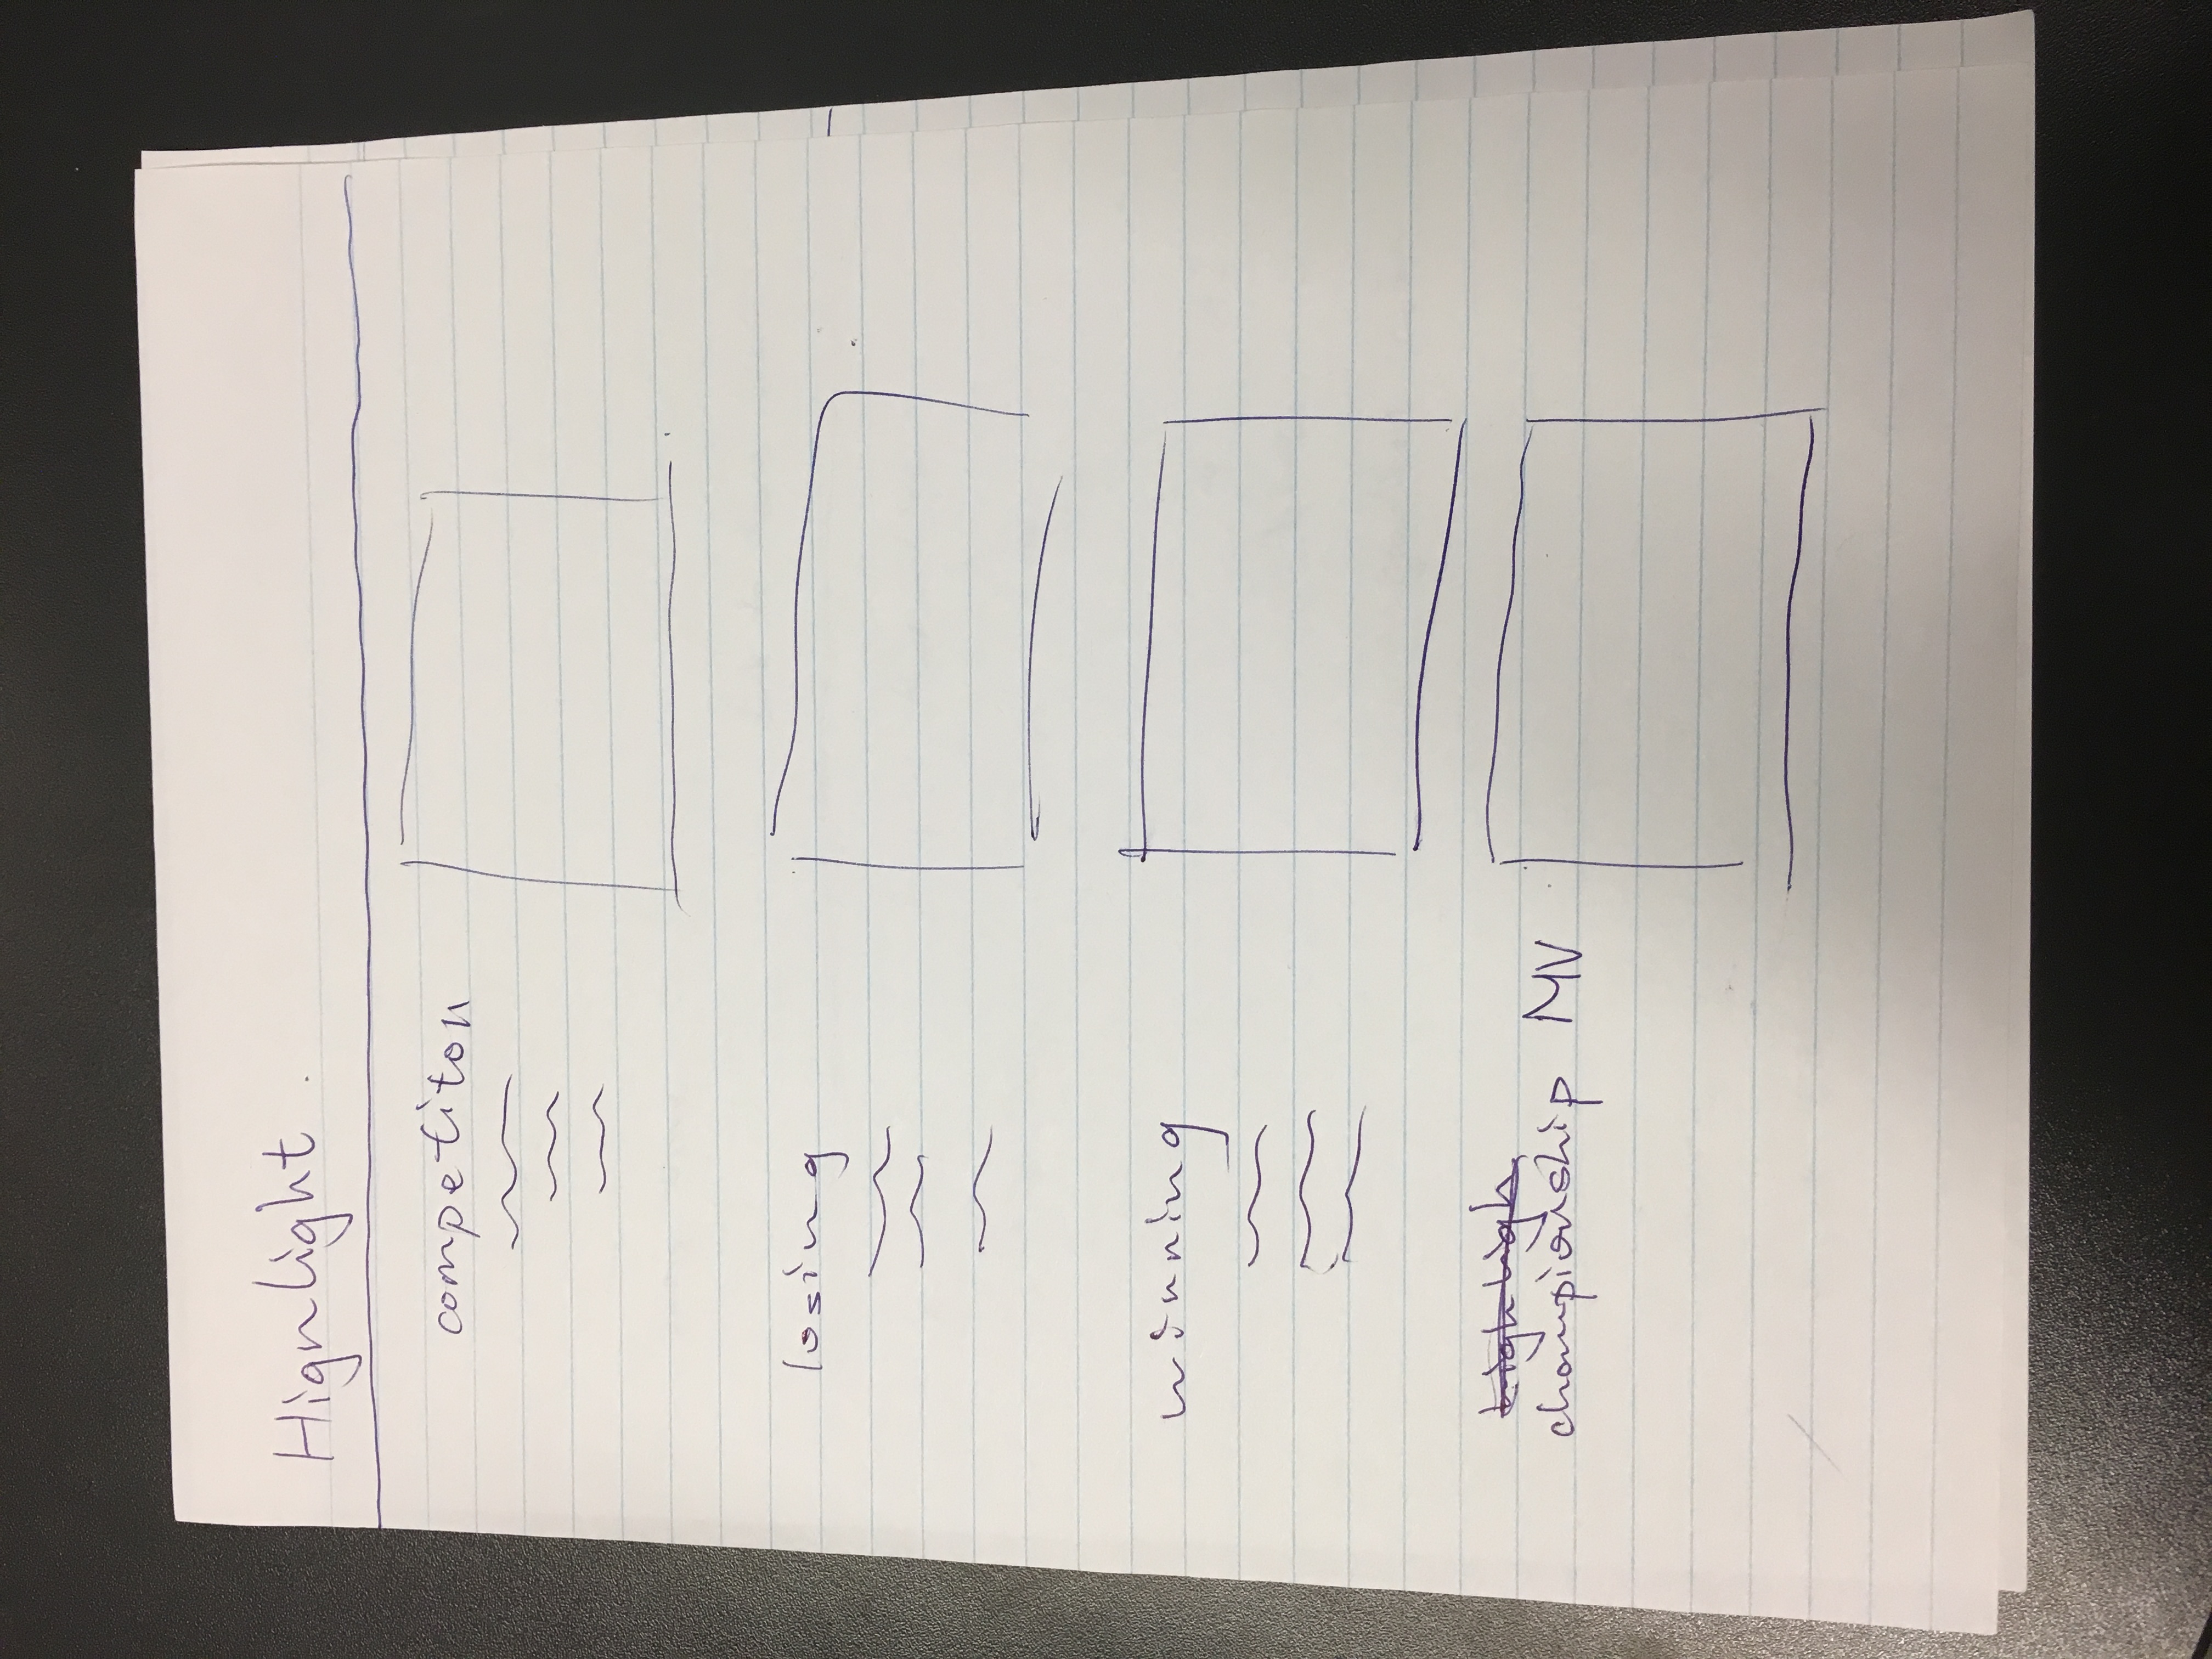 Hignlight
competiton
losing
winning
highligh
championship MV